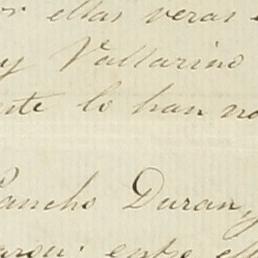 ellas veras
y Vallarino
lo han
Pancho Duran,
entre